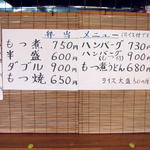 弁当メニュー(ライス付です)
もつ煮 750円
半盛 600円
ダブル 900円
もつ焼 650円
ハンバーグ 730円
ハンバーグ 900円
もつ煮うどん 680円
ライス大盛 50円増